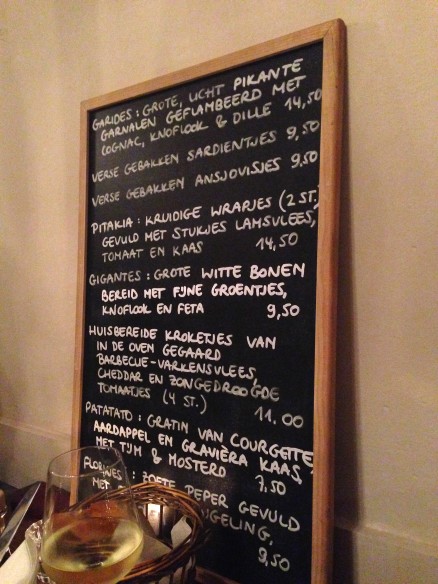 GARIDES : GROTE, LICHT PIKANTE
GARNALEN GEFLAMBEERD MET
COGNAC, KNOFLOOK & DILLE 14,50
VERSE GEBAKKEN SARDIENTJES 9,50
VERSE GEBAKKEN ANSJOVISJES 9,50
PITAKIA : KRUIDIGE WRAPJES (2 ST.)
GEVULD MET STUKJES LAMSVLEES,
TOMAAT EN KAAS 14,50
GIGANTES : GROTE WITTE BONEN
BEREID MET FIJNE GROENTJES,
KNOFLOOK EN FETA 9,50
HUISBEREIDE KROKETJES VAN
IN DE OVEN GEGAARD
BARBECUE-VARKENSVLEES,
CHEDDAR EN ZONGEDROOGDE
TOMAATJES (4 ST.) 11.00
PATATATO : GRATIN VAN COURGETTE,
AARDAPPEL EN GRAVIÈRA KAAS,
MET TIJM & MOSTERD 7,50
: ZOETE PEPER GEVULD
MET
9,50